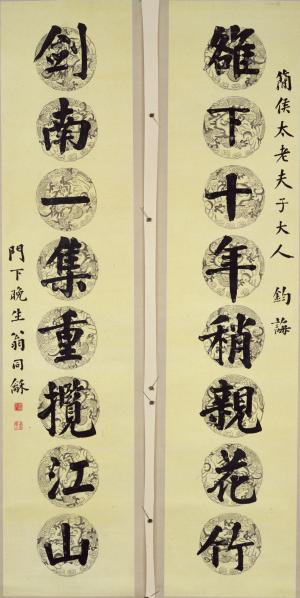 簡侯太老夫子大人 鈞誨
雒下十年稍親花竹
劍南一集重攬江山
門下晚生翁同龢